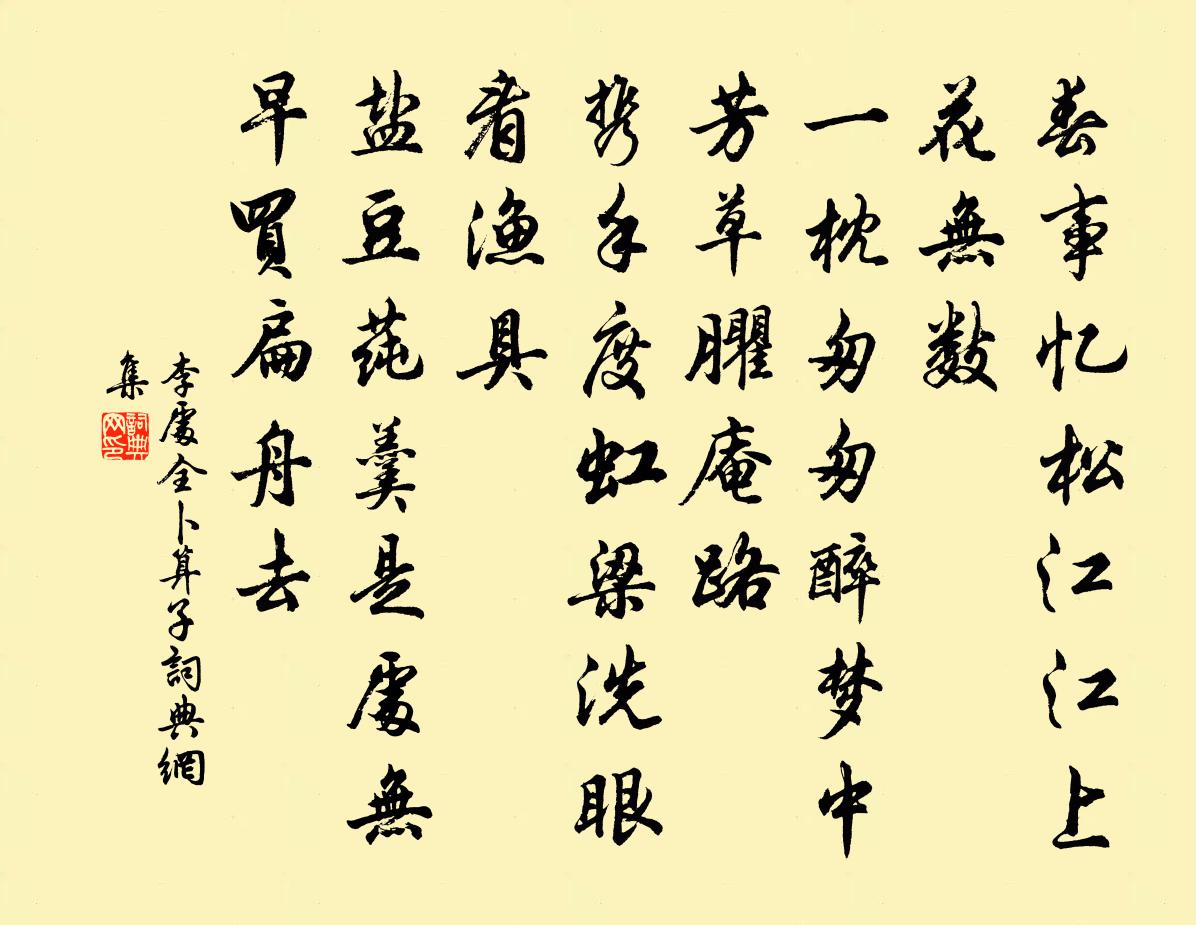 春事忆松江江上
花無數
一枕匆匆醉梦中
芳草臞庵路
携手度虹梁洗眼
看漁具
盐豆莼羹是處無
早買扁舟去
李處全卜算子詞典網
集
詞典網印